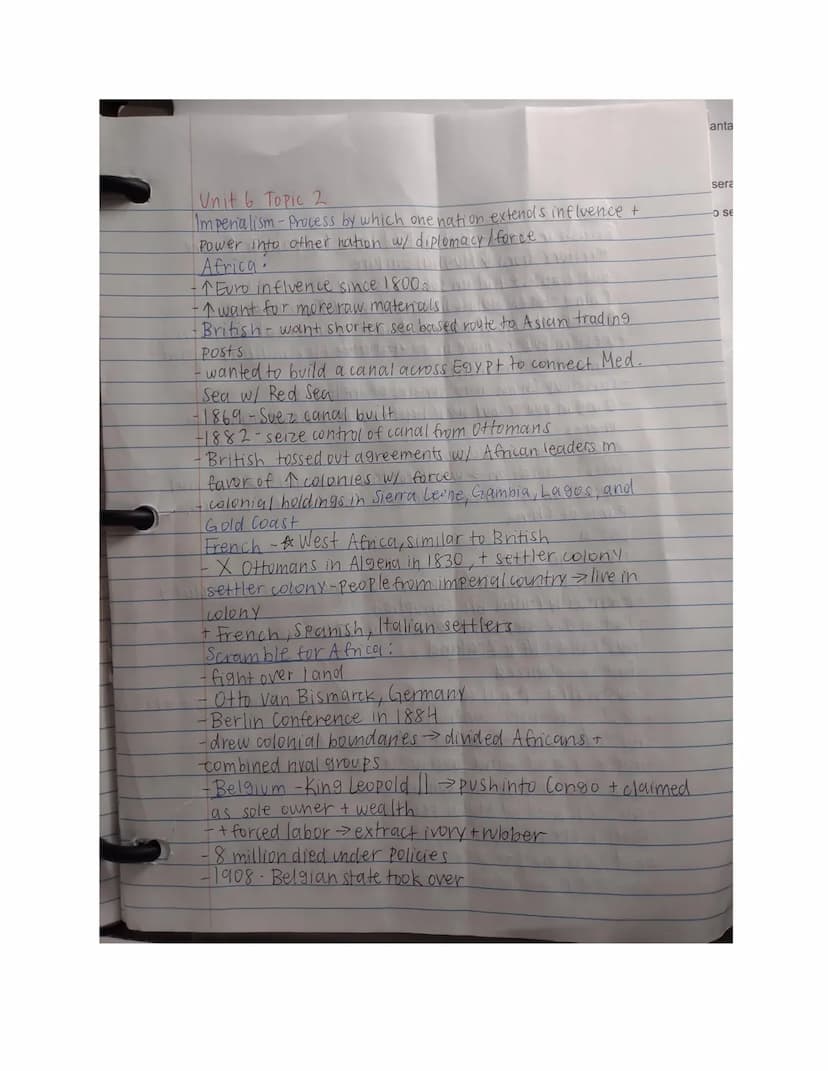 anta
sera
o se
Unit 6 Topic 2
Imperialism - Process by which one nation extends influence +
Power into other nation w/ diplomacy/force
Africa:
- ↑ Euro influence since 1800s
- ↑ want for more raw materials
- British - want shorter sea based route to Asian trading
posts
- wanted to build a canal across Egypt to connect Med.
Sea w/ Red Sea
- 1869 - Suez canal built
- 1882 - seize control of canal from Ottomans
- British tossed out agreements w/ African leaders in
favor of ↑ colonies w/ force
- colonial holdings in Sierra Leone, Gambia, Lagos, and
Gold Coast
French - West Africa, similar to British
- X Ottomans in Algeria in 1830, + settler colony
settler colony - people from imperial country → live in
colony
+ French, Spanish, Italian settlers
Scramble for Africa:
- fight over land
- Otto Van Bismarck, Germany
- Berlin Conference in 1884
- drew colonial boundaries → divided Africans +
combined rival groups
- Belgium - King Leopold II → push into Congo + claimed
as sole owner + wealth
- + forced labor → extract ivory + rubber
- 8 million died under policies
- 1908 - Belgian state took over